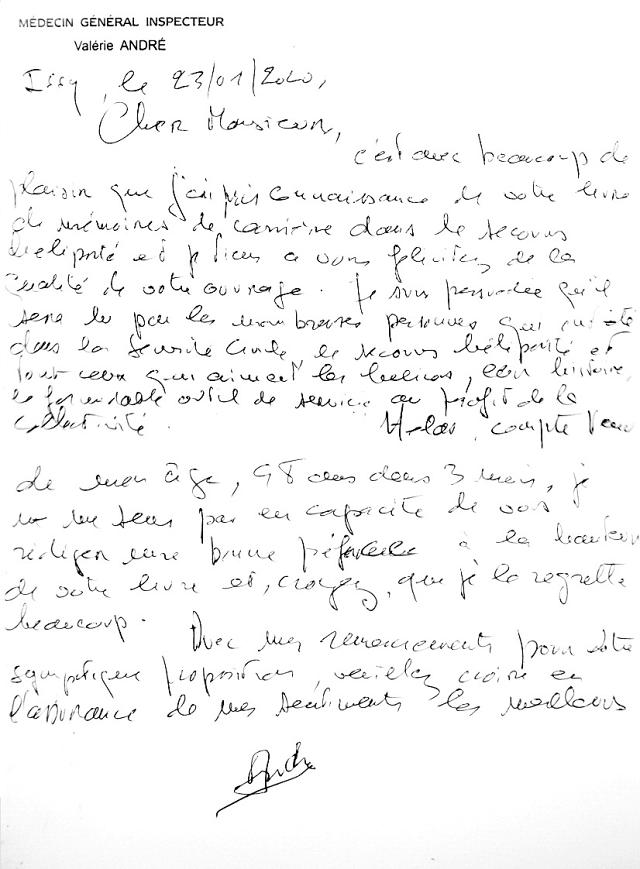 MÉDECIN GÉNÉRAL INSPECTEUR
Valérie ANDRÉ
Issy, le 23/01/2020,
Cher Monsieur,
c'est avec beaucoup de
plaisir que j'ai pris connaissance de votre livre
de mémoires de carrière dans le secours
héliporté et je tiens à vous féliciter de la
qualité de votre ouvrage. Je suis persuadée qu'il
sera lu par les nombreuses personnes qui
dans la Sécurité Civile, le secours héliporté et
tout ceux qui aiment les hélicos, leur histoire,
le formidable outil de service au profit de la
collectivité. Hélas, compte tenu
de mon âge, 98 ans dans 3 mois, je
ne me sens pas en capacité de vous
rédiger une bonne préface à la hauteur
de votre livre et, croyez, que je le regrette
beaucoup. Avec mes remerciements pour votre
sympathique proposition, veuillez croire en
l'assurance de mes sentiments les meilleurs
André